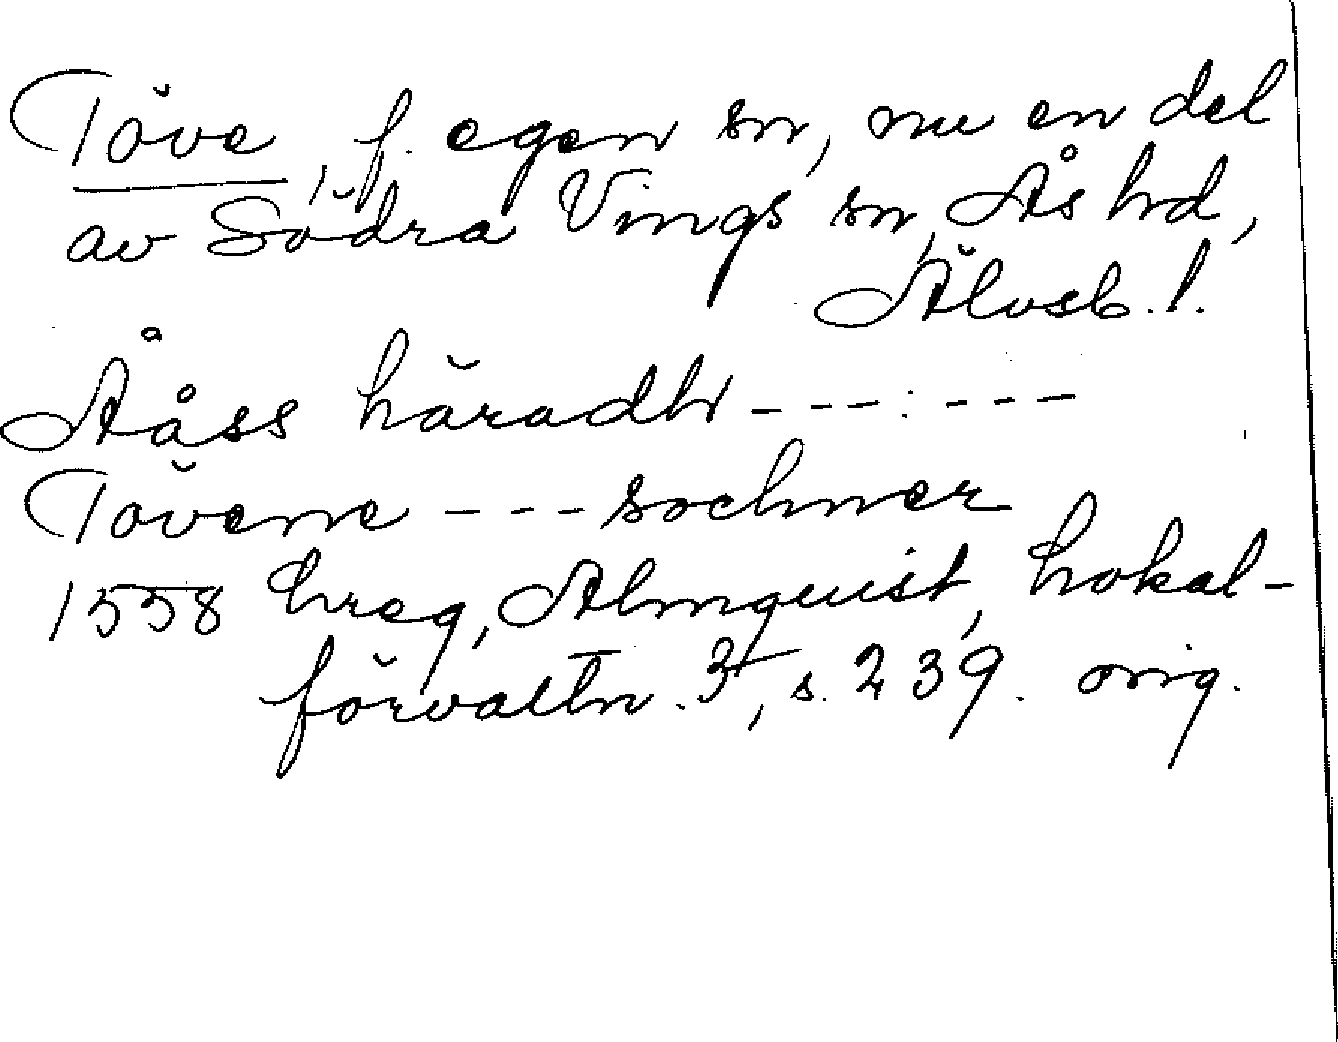 Töve, f. egen sn, nu en del
av Södra Vings sn, Ås hd,
Älvsb. l.
Åååss häradh - - - : - - -
Tövene - - - sochner
1558 hreg, Almquist, Lokal-
förvaltn. 3, s. 239. orig.